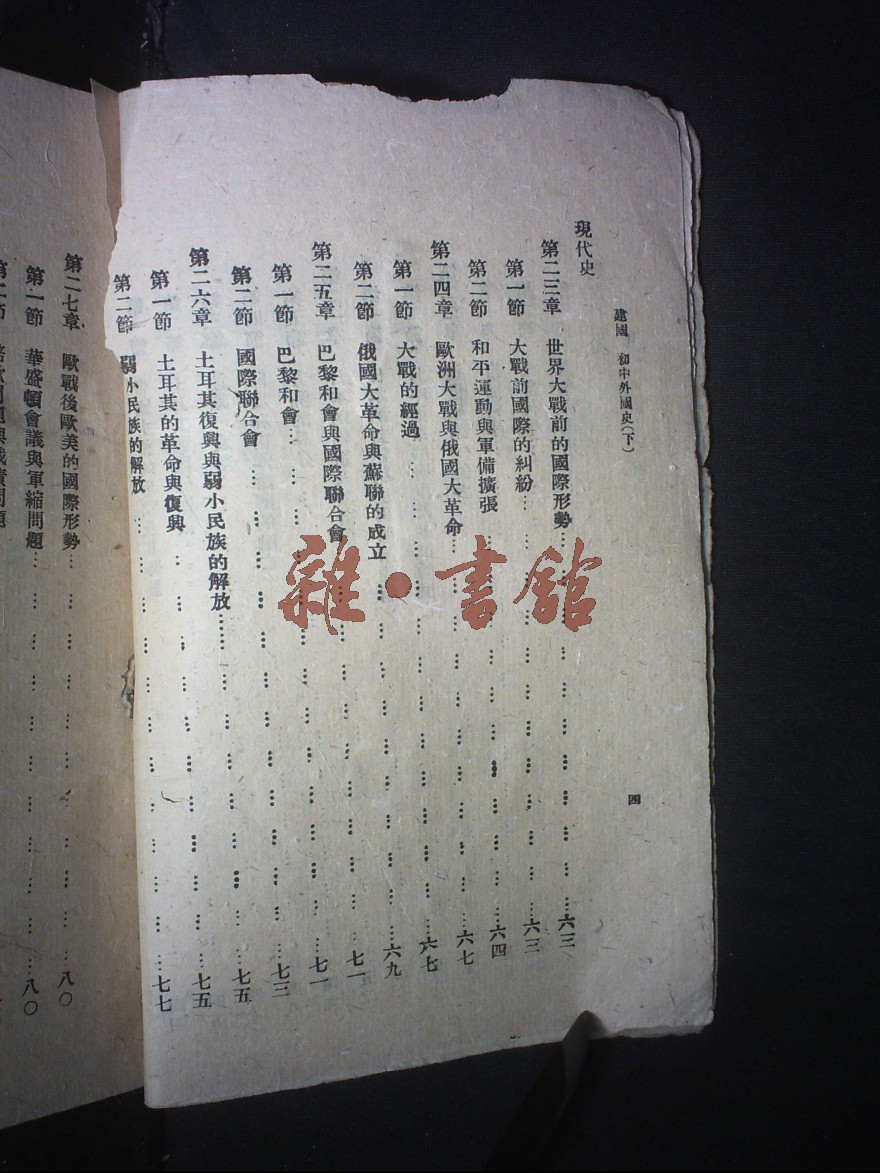 建國 初中外國史(下)
四
現代史
第二三章 世界大戰前的國際形勢……六三
第一節 大戰前國際的糾紛……六三
第二節 和平運動與軍備擴張……六四
第二四章 歐洲大戰與俄國大革命……六七
第一節 大戰的經過……六七
第二節 俄國大革命與蘇聯的成立……六九
第二五章 巴黎和會與國際聯合會……七一
第一節 巴黎和會……七一
第二節 國際聯合會……七三
第二六章 土耳其復興與弱小民族的解放……七五
第一節 土耳其的革命與復興……七五
第二節 弱小民族的解放……七七
第二七章 歐戰後歐美的國際形勢……八〇
第一節 華盛頓會議與軍縮問題……八〇
雜·書館